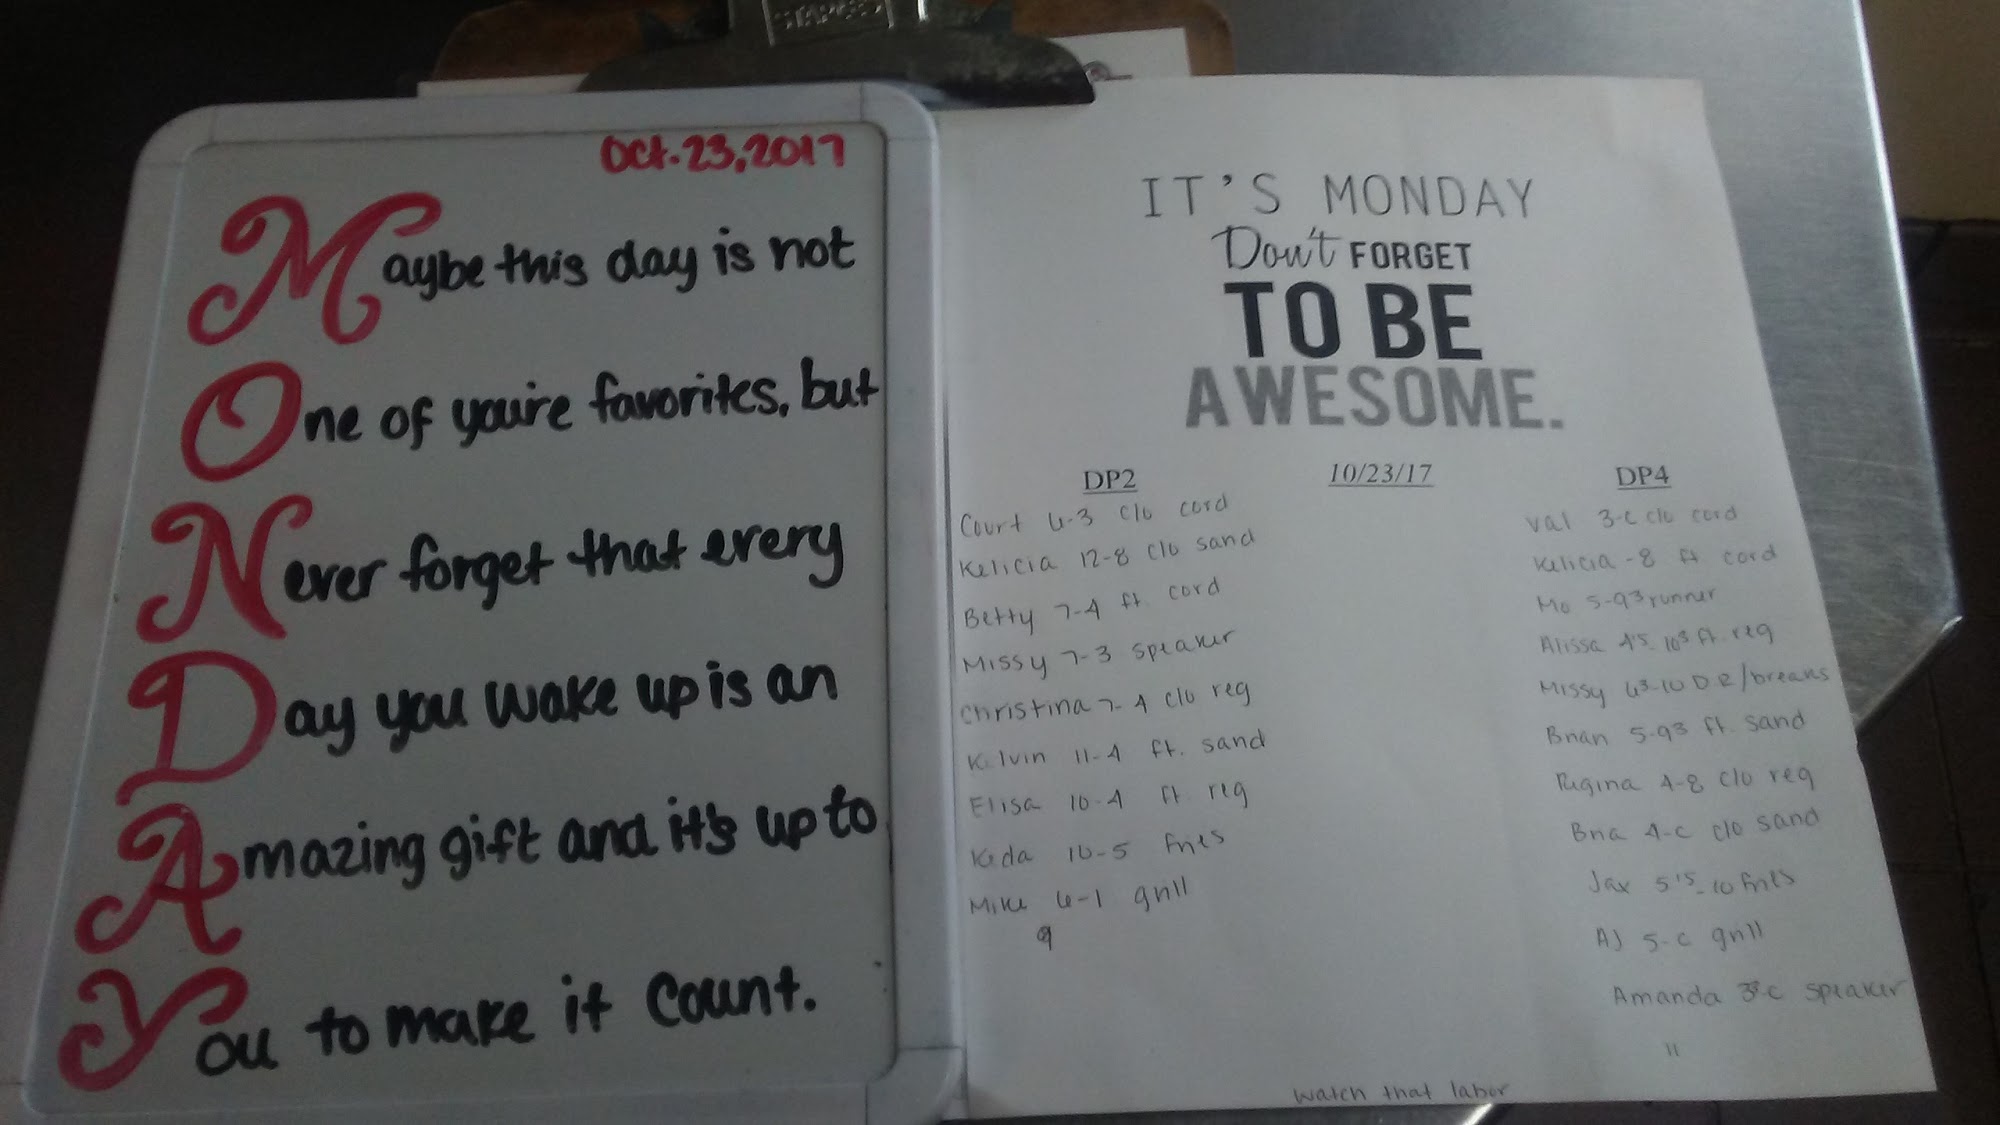 Oct. 23, 2017
Maybe this day is not
One of you're favorites, but
Never forget that every
Day you wake up is an
Amazing gift and it's up to
You to make it count.
IT'S MONDAY
Don't FORGET
TO BE
AWESOME.
DP2 10/23/17 DP4
Court 6-3 c/o cord
Kelicia 12-8 c/o sand
Betty 7-4 ft. cord
Missy 7-3 speaker
Christina 7-4 c/o reg
Kelvin 11-4 ft. sand
Elisa 10-4 ft. reg
Keda 10-5 fries
Mike 6-1 grill
9
Val 3-C c/o cord
Kelicia -8 ft cord
Mo 5-9³ runner
Alissa 4¹⁵-10³ ft. reg
Missy 6³-10 DR/breaks
Brian 5-9³ ft. sand
Regina 4-8 c/o reg
Bria 4-C c/o sand
Jax 5¹⁵-10 fries
AJ 5-C grill
Amanda C speaker
11
Watch that labor